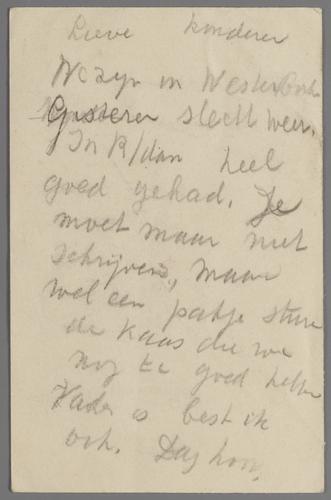 Lieve kinderen
We zijn in Westerbork
Gisteren slecht weer.
In R/dam heel
goed gehad. Je
moet maar niet
schrijven, maar
wel een pakje sture
de kaas die we
nog te goed hebbe
Vader is best ik
ook. Dag hoor.